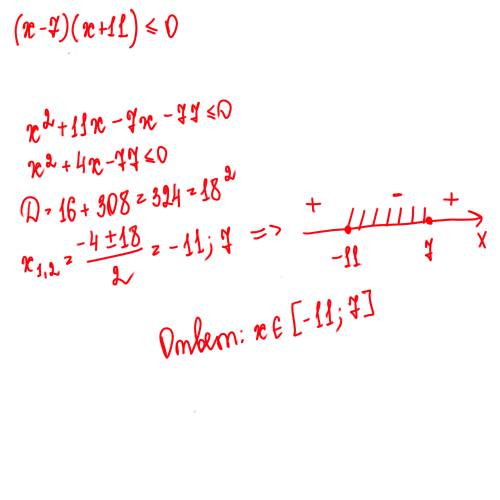 (x-7)(x+11) ≤ 0
x²+11x-7x-77≤0
x²+4x-77≤0
D=16+308=324=18²
x₁,₂ = (-4±18)/2 = -11; 7 =>
+ - +
-11 7 x
Ответ: x∈[-11; 7]